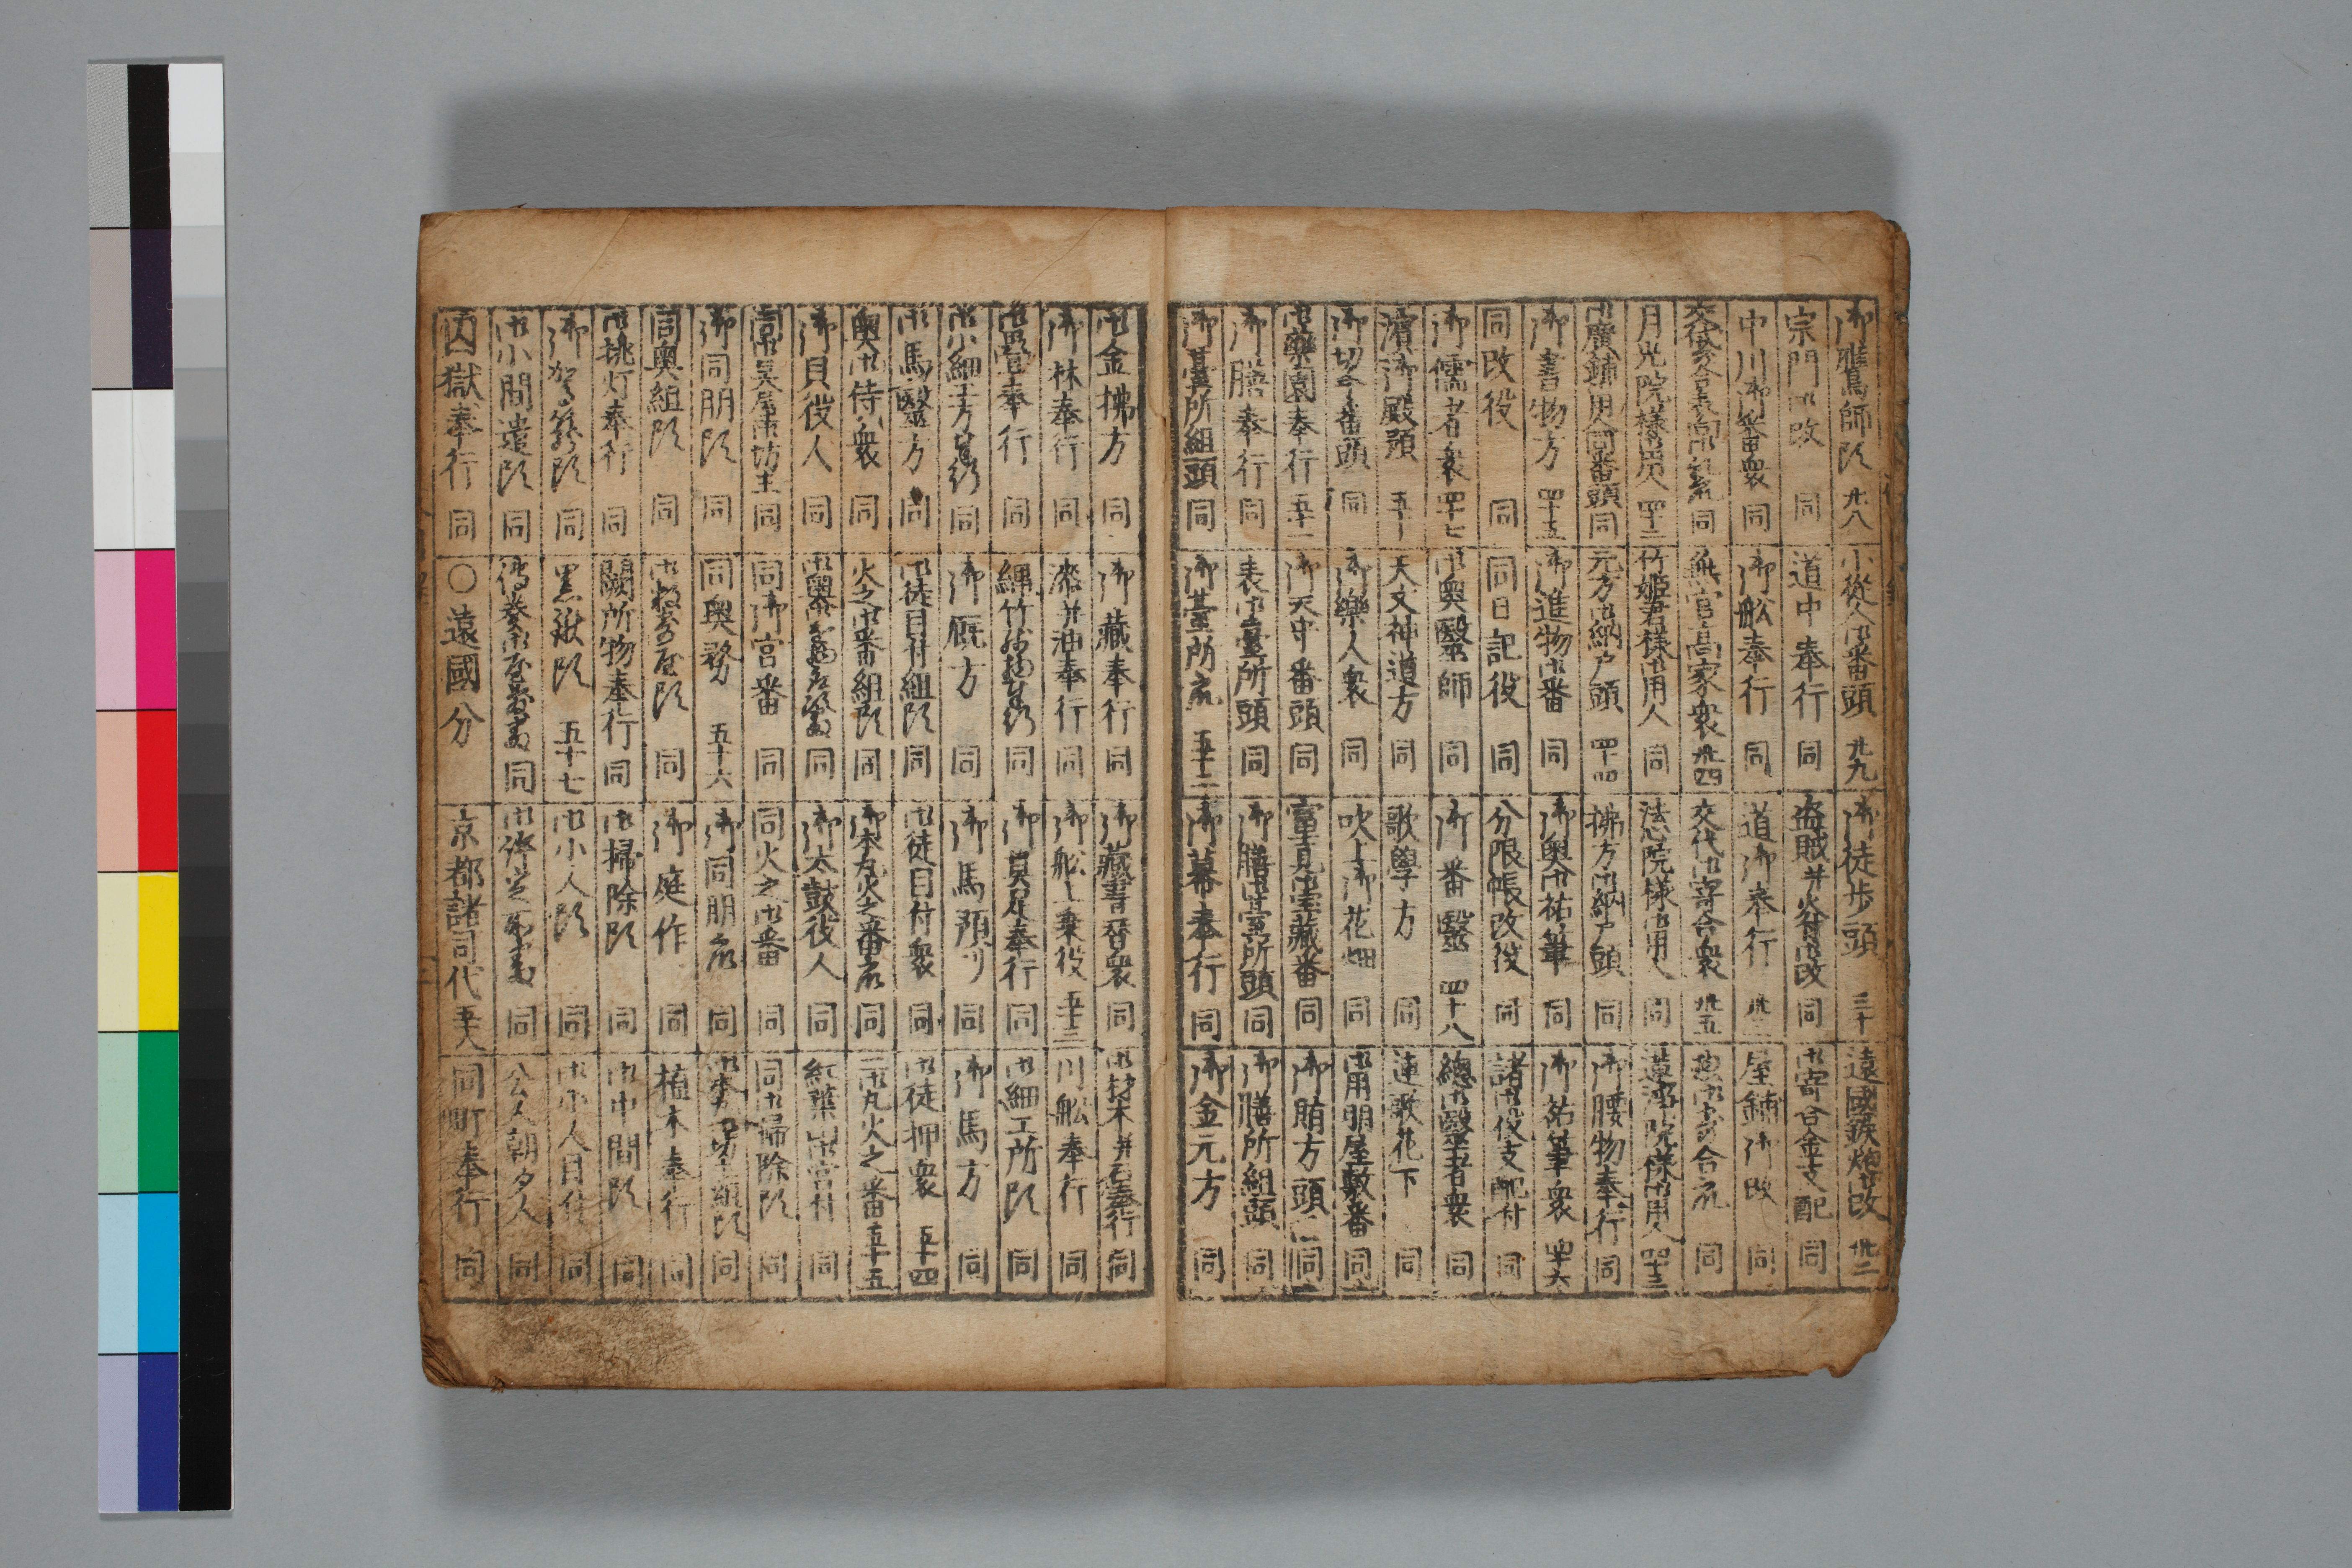 御鷹師頭 廿八
小従人御番頭 廿九
御徒歩頭 三十
遠國鉄炮御改 卅二
宗門御改 同
道中奉行 同
盗賊并火付御改 同
御寄合金支配 同
中川御番衆 同
御舩奉行 同
道御奉行
屋鋪御改 同
無官高家衆 卅四
交代御寄合衆 卅五
同
月光院様御用人 四十二
竹姫君様御用人 同
法心院様御用人 同
蓮浄院様御用人 四十三
御廣鋪御用人同番頭 同
元方御納戸頭 四十四
拂方御納戸頭 同
御腰物奉行 同
御書物方 四十五
御進物御番 同
御奥御祐筆 同
御祐筆衆 四十六
同改役 同
同日記役 同
分限帳改役 同
諸御役支配付 同
御儒者衆 四十七
御奥醫師 同
御番醫 四十八
總御醫者衆 同
濱御殿預 五十一
天文神道方 同
歌學方 同
連歌花下 同
御切手番頭 同
御樂人衆 同
吹上御花畑 同
御用明屋敷番 同
御藥園奉行 五十一
御天守番頭 同
富士見御宝藏番 同
御賄方頭 同
御膳奉行 同
表御臺所頭 同
御膳御臺所頭 同
御膳所組頭 同
御臺所組頭 同
御臺所衆 五十二
御幕奉行 同
御金元方 同
御金拂方 同
御藏奉行 同
御藏書替衆 同
御材木并石奉行 同
御林奉行 同
漆并油奉行 同
御舩上乗役 五十三
川舩奉行 同
御畳奉行 同
同
御具足奉行 同
御細工所頭 同
同
御厩方 同
御馬預り 同
御馬方 同
御馬醫方 同
御徒目付組頭 同
御徒目付衆 同
御徒押衆 五十四
奥御侍衆 同
火之御番組頭 同
御本丸火之番衆 同
二御丸火之番 五十五
御貝役人 同
同
御太鼓役人 同
紅葉山御宮付 同
同御宮番 同
同火之御番 同
同御掃除頭 同
御同朋頭 同
同奥勤 五十六
御同朋衆 同
御本丸坊主組頭 同
同奥組頭 同
御数寄屋頭 同
御庭作 同
植木奉行 同
御挑灯奉行 同
闕所物奉行 同
御掃除頭 同
御中間頭 同
御駕籠頭 同
黒鍬頭 五十七
御小人頭 同
御小人目付 同
御小間遣頭 同
同
同
公人朝夕人 同
囚獄奉行 同
○遠國分
京都諸司代 五十八
同町奉行 同